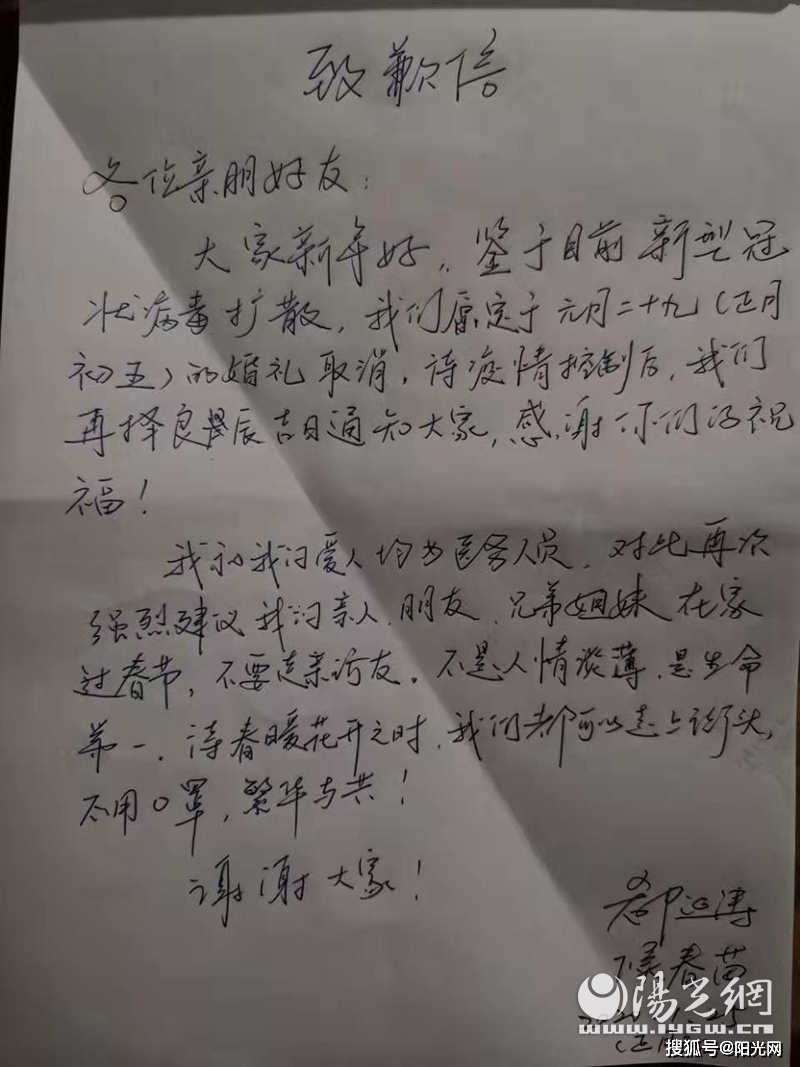 致歉信
各位亲朋好友：
大家新年好，鉴于目前新型冠
状病毒扩散，我们原定于元月二十九（正月
初五）的婚礼取消，待疫情控制后，我们
再择良辰吉日通知大家，感谢你们的祝
福！
我和我的爱人均为医务人员，对此再次
强烈建议我的亲人、朋友、兄弟姐妹在家
过春节，不要走亲访友。不是人情淡薄，是生命
第一。待春暖花开之时，我们都可以走上街头，
不用口罩，繁华与共！
谢谢大家！
郗
春苗
阳光网
www.iygw.cn
搜狐号@阳光网